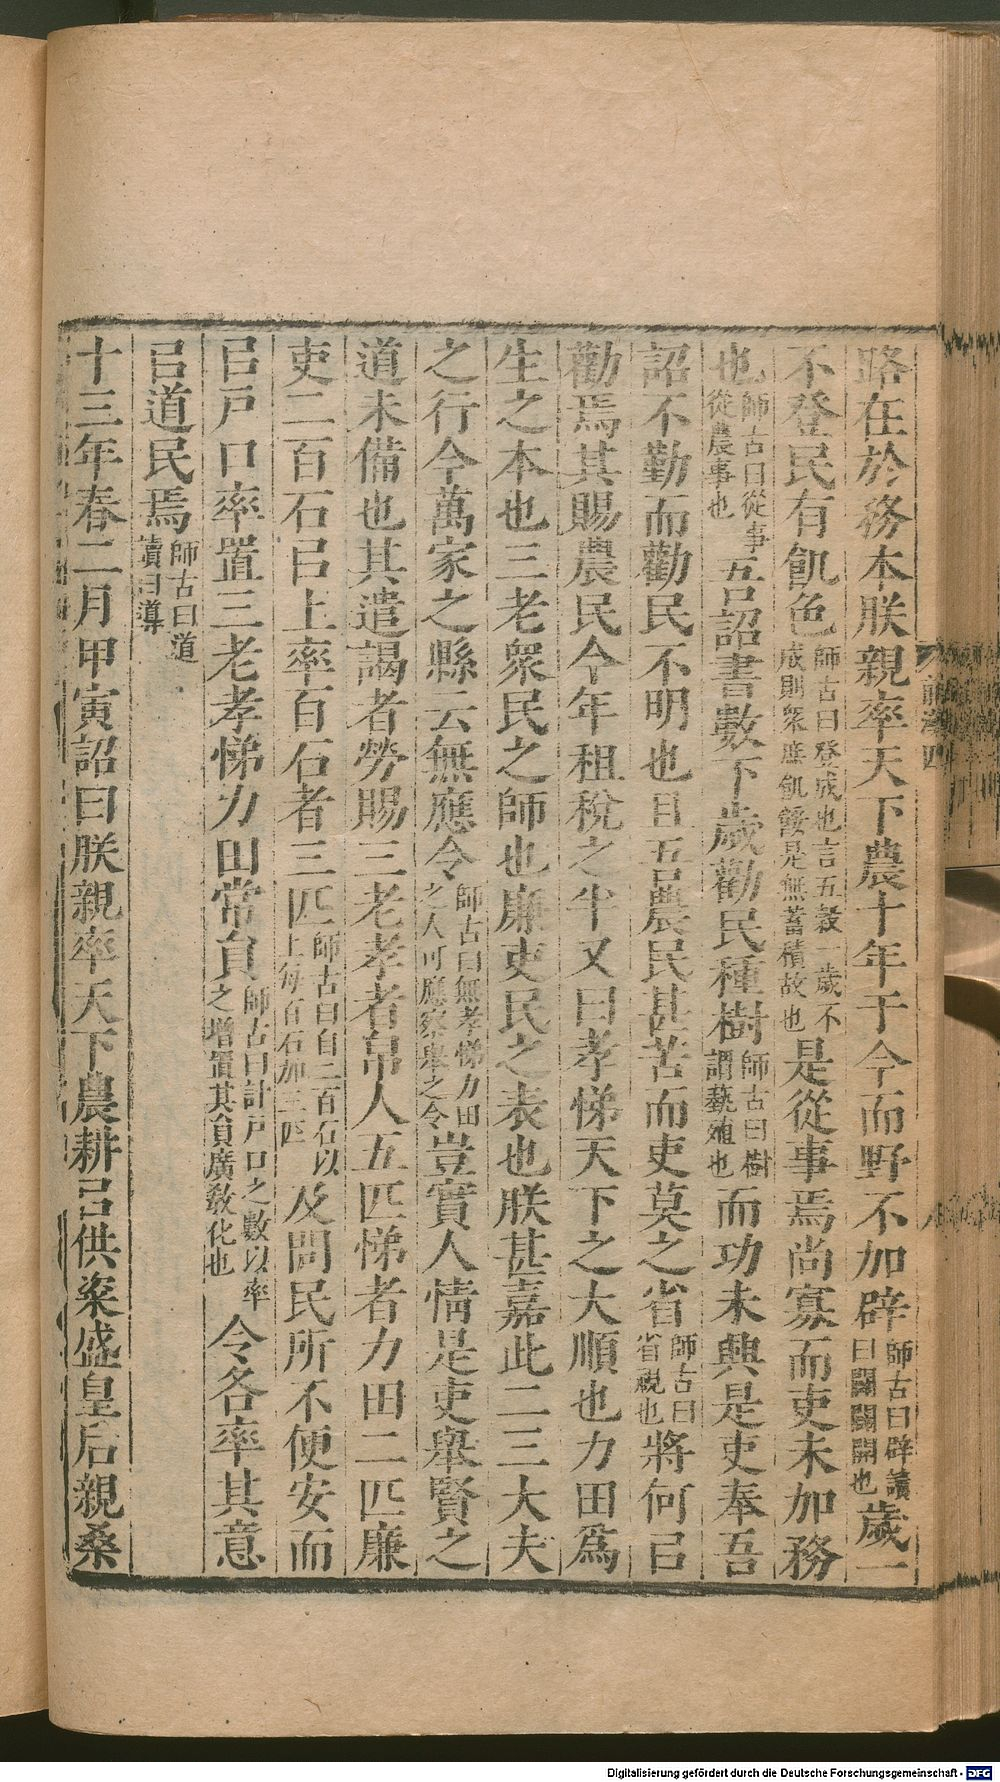 路在於務本朕親率天下農十年于今而野不加辟師古曰辟讀曰闢闢開也歲一
不登民有飢色師古曰登成也言五穀一歲不成則衆庶飢餒是無蓄積故也是從事焉尚寡而吏未加務
也師古曰從事從農事也吾㠯詔書數下歲勸民種樹師古曰樹謂蓺殖也而功未興是吏奉吾
詔不勤而勸民不明也且吾農民甚苦而吏莫之省師古曰省視也將何㠯
勸焉其賜農民今年租稅之半又曰孝悌天下之大順也力田爲
生之本也三老衆民之師也廉吏民之表也朕甚嘉此二三大夫
之行今萬家之縣云無應令師古曰無孝悌力田之人可應察舉之令豈實人情是吏舉賢之
道未備也其遣謁者勞賜三老孝者帛人五匹悌者力田二匹廉
吏二百石㠯上率百石者三匹師古曰自二百石以上每百石加三匹及問民所不便安而
㠯戶口率置三老孝悌力田常員師古曰計戶口之數以率之增置其員廣敎化也令各率其意
㠯道民焉師古曰道讀曰導
十三年春二月甲寅詔曰朕親率天下農耕㠯供粢盛皇后親桑
四
八
Digitalisierung gefördert durch die Deutsche Forschungsgemeinschaft - DFG